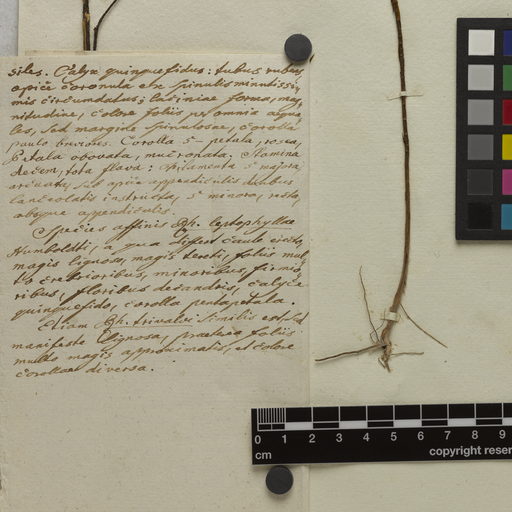 siles. Calyx quinquefidus: tubus rubens
apice coronula ex spinulis minutissi-
mis circumdatus; laciniae forma, mag-
nitudine, colore foliis per omnia aequa-
les, sed margine spinulosae, corolla
paulo breviores. Corolla 5-petala, rosea,
Petala obovata, mucronata. Stamina
decem, tota flava: filamenta 5 majora
arcuata, sub apice appendiculis duabus
lanceolatis instructa, 5 minora, recta,
absque appendiculis.
Species affinis Rh. leptophyllae
Humboldti, a qua differt caule erecto,
magis lignoso, magis tereti, foliis mul-
to crebrioribus, minoribus, firmio-
ribus, floribus decandris, calyce
quinquefido, corolla pentapetala.
Etiam Rh. trivalvi similis est, sed
manifeste lignosa, praeterea foliis
multo magis approximatis, et colore
corollae diversa.
0 1 2 3 4 5 6 7 8 9
cm
copyright reser